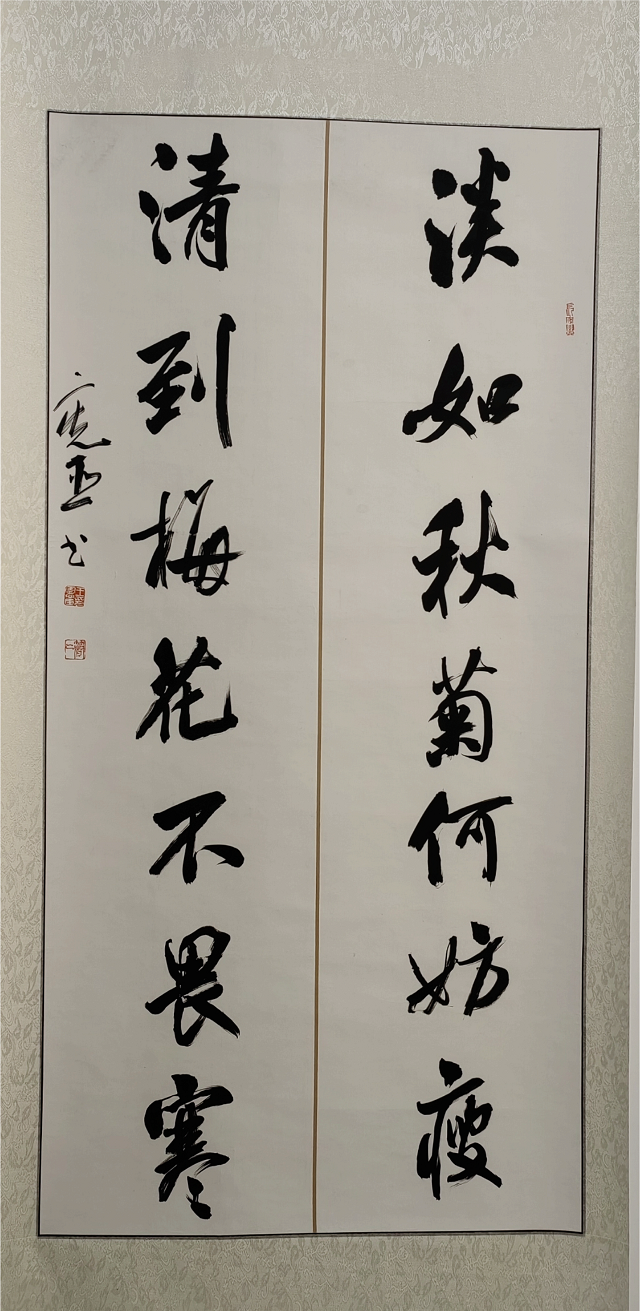 淡如秋菊何妨瘦
清到梅花不畏寒
书